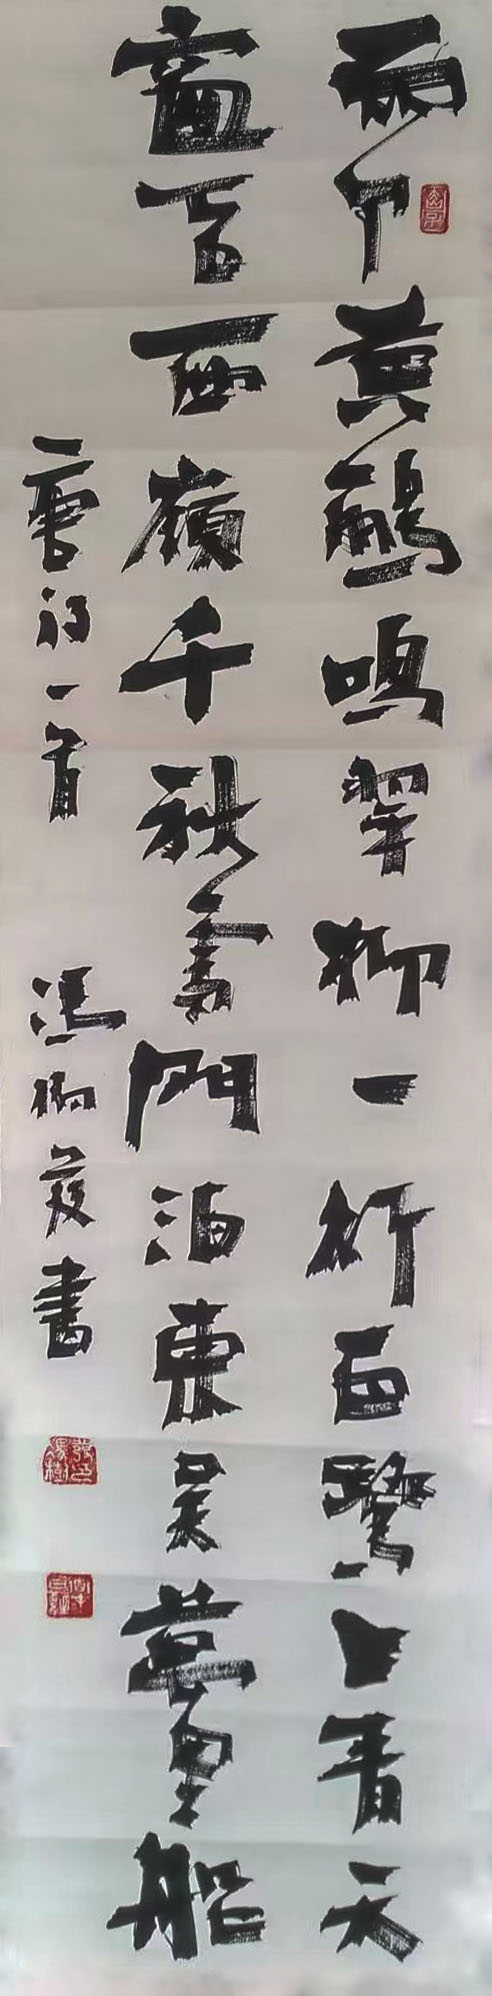 兩个黃鸝鳴翠柳一行白鷺上青天
窗含西嶺千秋雪門泊東吳萬里船
唐詩一首 馮 書